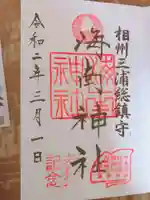 相州三浦総鎮守
海南神社
令和二年三月一日
記念